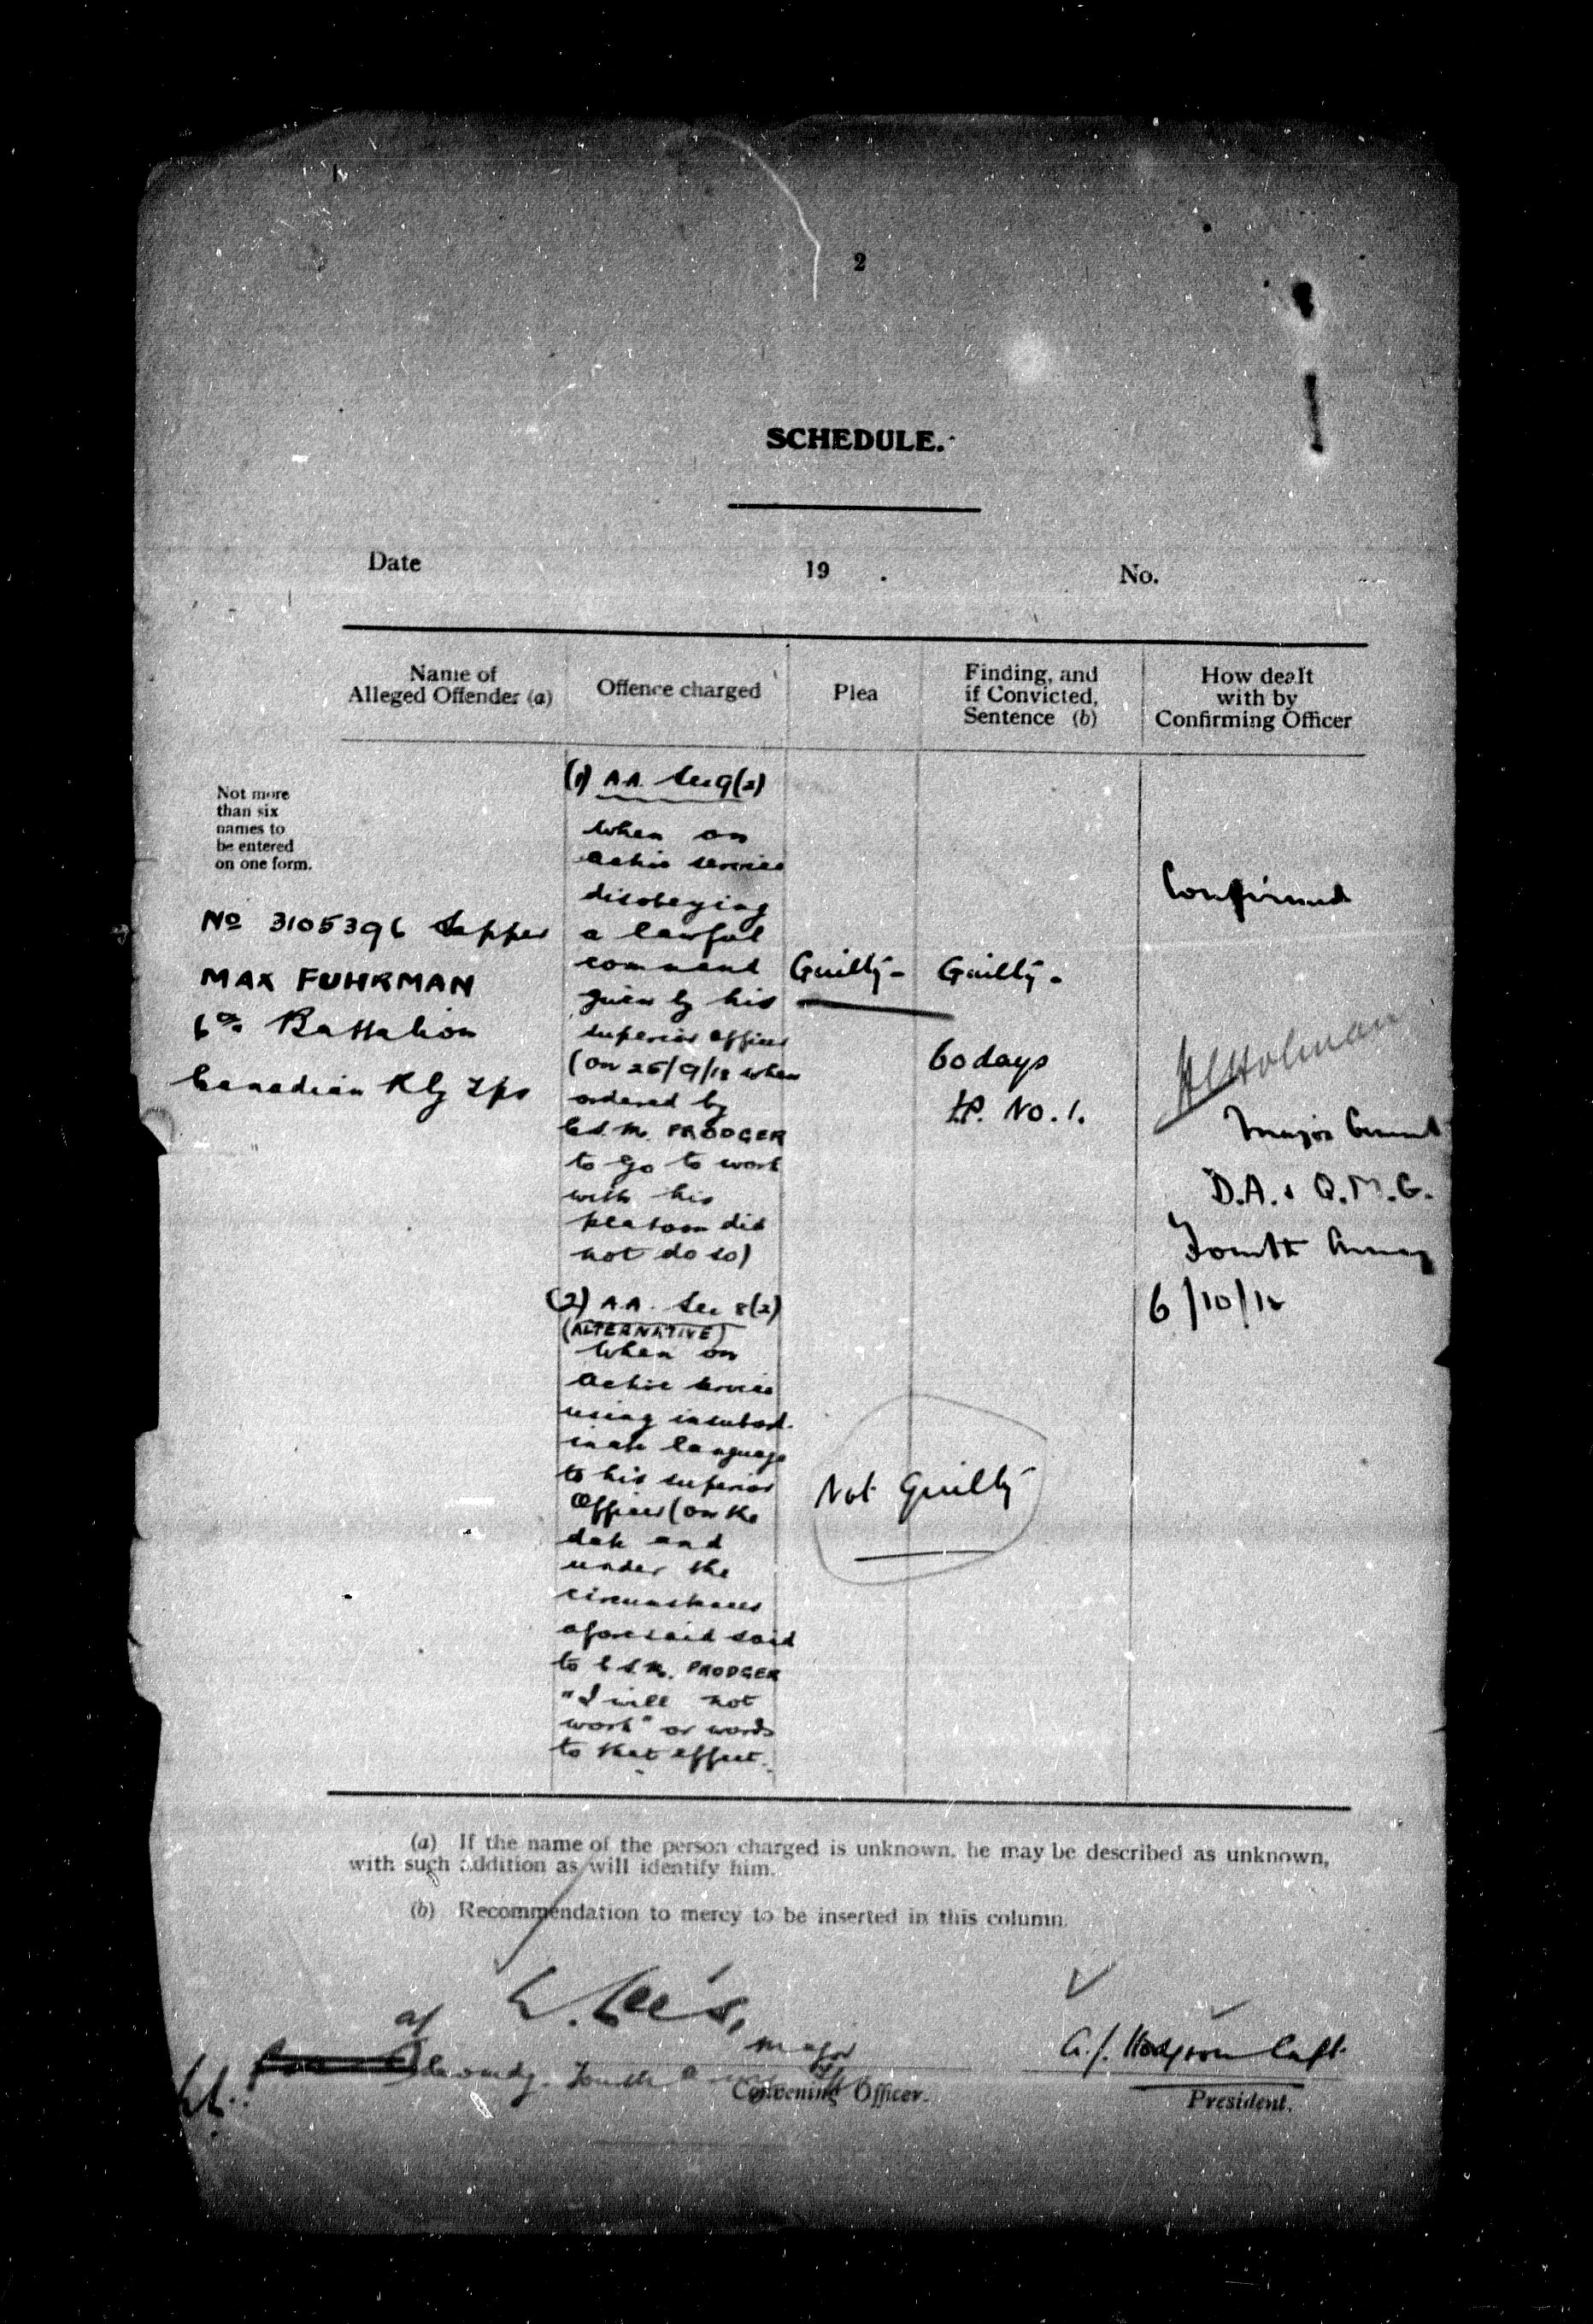 2
SCHEDULE.
Date 19 . No.
Name of
Alleged Offender (a)
Offence charged
Plea
Finding, and
if Convicted,
Sentence (b)
How dealt
with by
Confirming Officer
Not more
than six
names to
be entered
on one form.
No 3105396 Sapper
MAX FUHRMAN
6th Battalion
Canadian Rly Tps
(1) A.A. Sec 9(2)
When on
active service
disobeying
a lawful
command
given by his
superior officer
(on 25/9/18 when
ordered by
C.S.M. PRODGER
to go to work
with his
platoon did
not do so)
(2) A.A. Sec 8(2)
(ALTERNATIVE)
When on
active service
using insubord-
inate language
to his superior
Officer (on the
date and
under the
circumstances
aforesaid said
to C.S.M. PRODGER
"I will not
work" or words
to that effect.
Guilty -
Not Guilty
Guilty -
60 days
F.P. No. 1.
Confirmed
HCHolman
Major General
D.A. & Q.M.G.
Fourth Army
6/10/18
(a) If the name of the person charged is unknown, he may be described as unknown,
with such addition as will identify him.
(b) Recommendation to mercy to be inserted in this column.
Major
Comdg. Fourth
Convening Officer.
A.J. Hodgson Capt.
President.